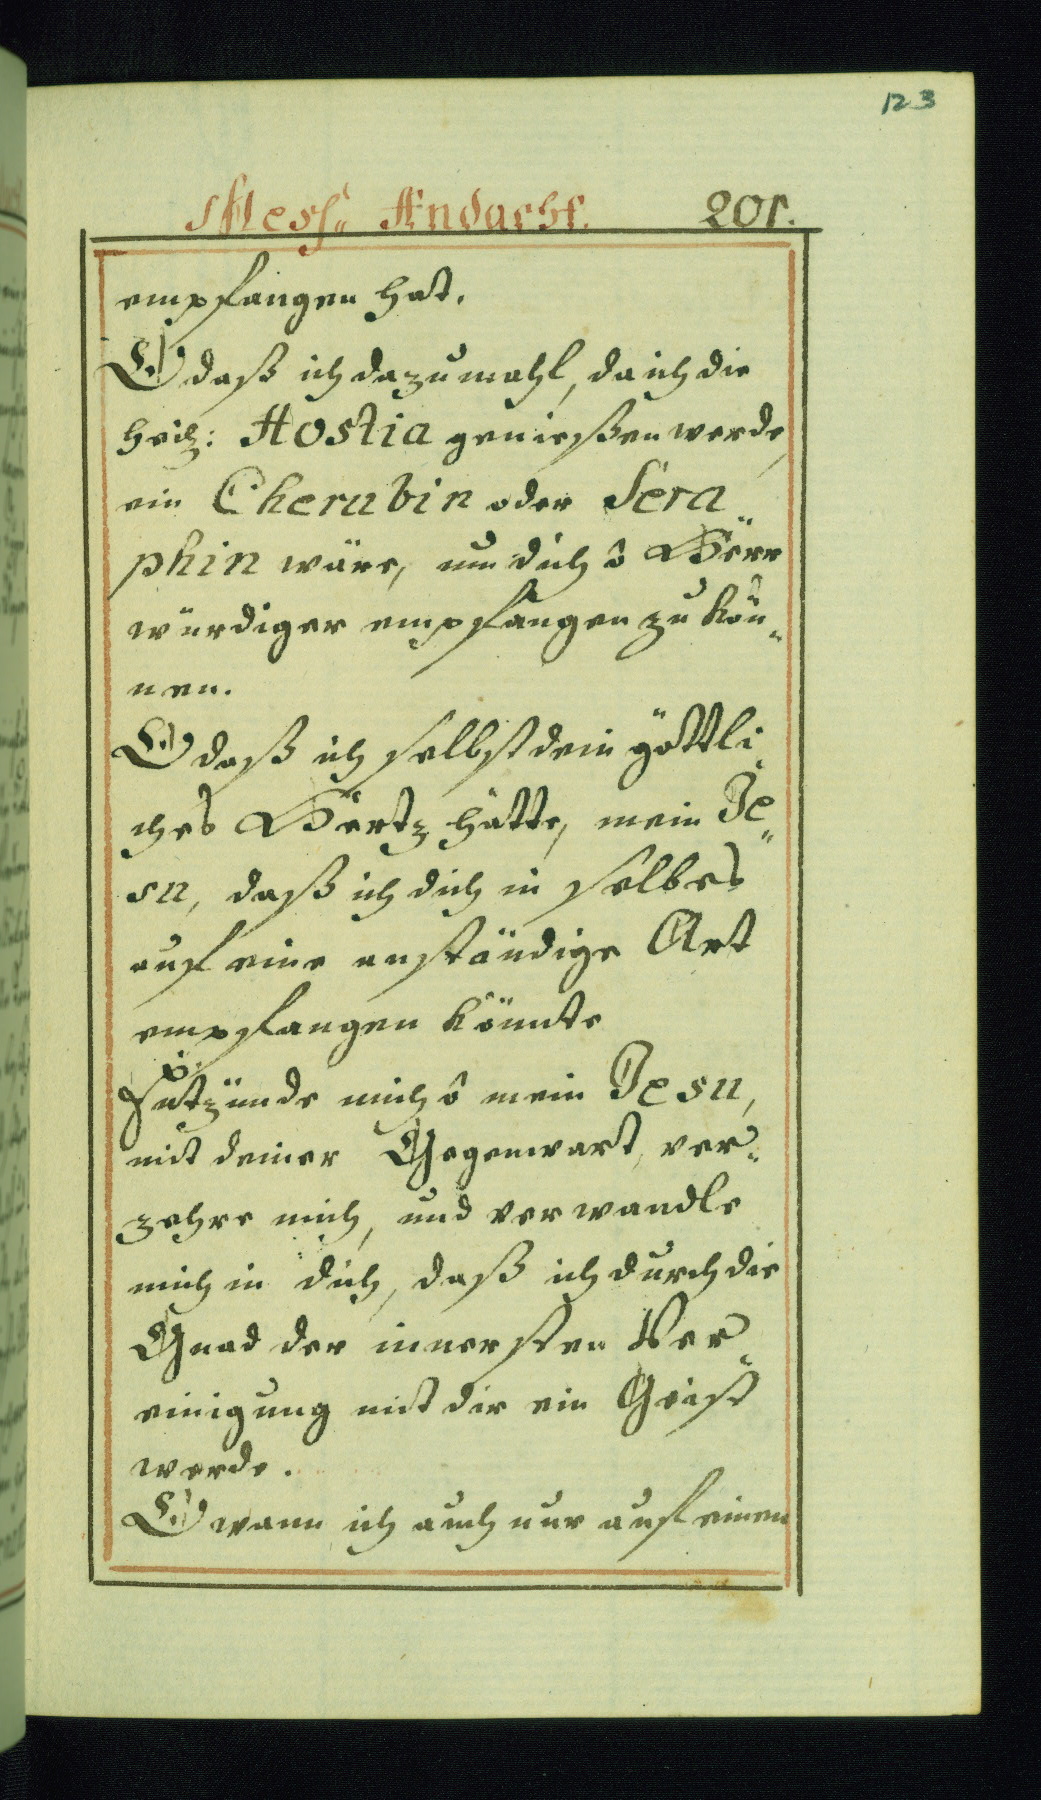 123
Mess„ Andacht. 201.
empfangen hat.
O daß ich dazumahl, da ich die
heil: Hostia genießen werde,
ein Cherubin oder Sera„
phin wäre, um dich ô Herr
würdiger empfangen zu kön„
nen.
O daß ich selbst dein göttli„
ches Hertz hätte, mein Je„
su, daß ich dich in selbes
auf eine anständige Art
empfangen könnte
Entzünde mich ô mein Jesu,
mit deiner Gegenwart, ver„
zehre mich, und verwandle
mich in dich, daß ich durch die
Gnad der innersten Ver„
einigung mit dir ein Geist
werde.
O wann ich auch nur auf einen